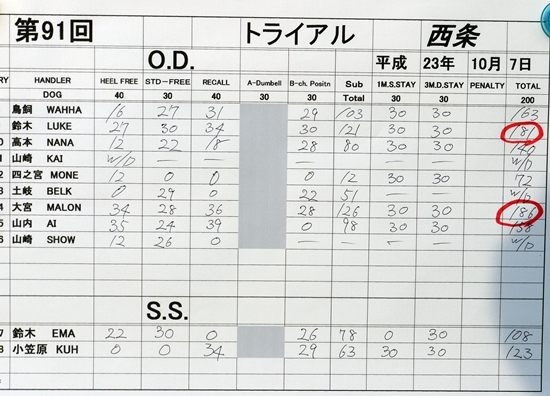 第91回 トライアル 西条
O.D. 平成 23年 10月 7日
RY HANDLER HEEL FREE STD-FREE RECALL A-Dumbell B-ch. Positn Sub 1M.S.STAY 3M.D.STAY PENALTY TOTAL
DOG 40 30 40 30 30 Total 30 30 200
鳥飼 WAHHA 16 27 31 29 103 30 30 163
鈴木 LUKE 27 30 34 30 121 30 30 181
0 高本 NANA 12 22 18 28 80 30 30 140
1 山崎 KAI W/D — — — — — — W/D
2 四之宮 MONE 12 0 0 0 12 30 30 72
3 土岐 BELK 0 29 0 22 51 — — W/D
4 大宮 MALON 34 28 36 28 126 30 30 186
5 山内 AI 35 24 39 0 98 30 30 158
6 山崎 SHOW 12 26 0 — — — — W/D
S.S.
7 鈴木 EMA 22 30 0 26 78 0 30 108
8 小笠原 KUH 0 0 34 29 63 30 30 123